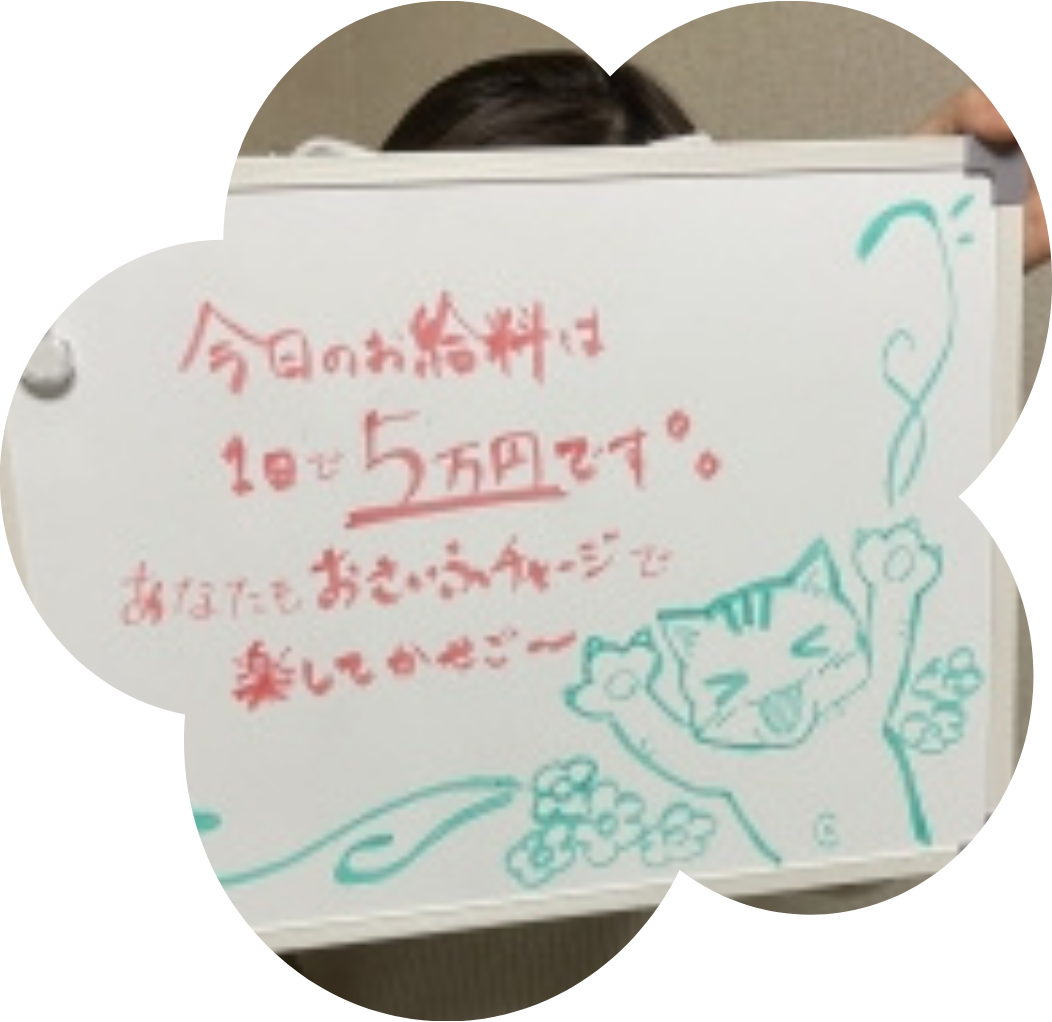 今日のお給料は
1日で5万円です°。
あなたも おさいふチャージで
楽してかせご〜